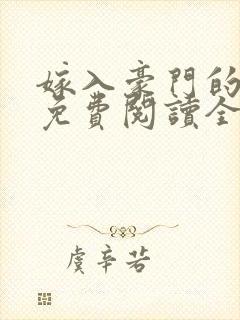 嫁入豪門的
免費閱讀全
虞辛若